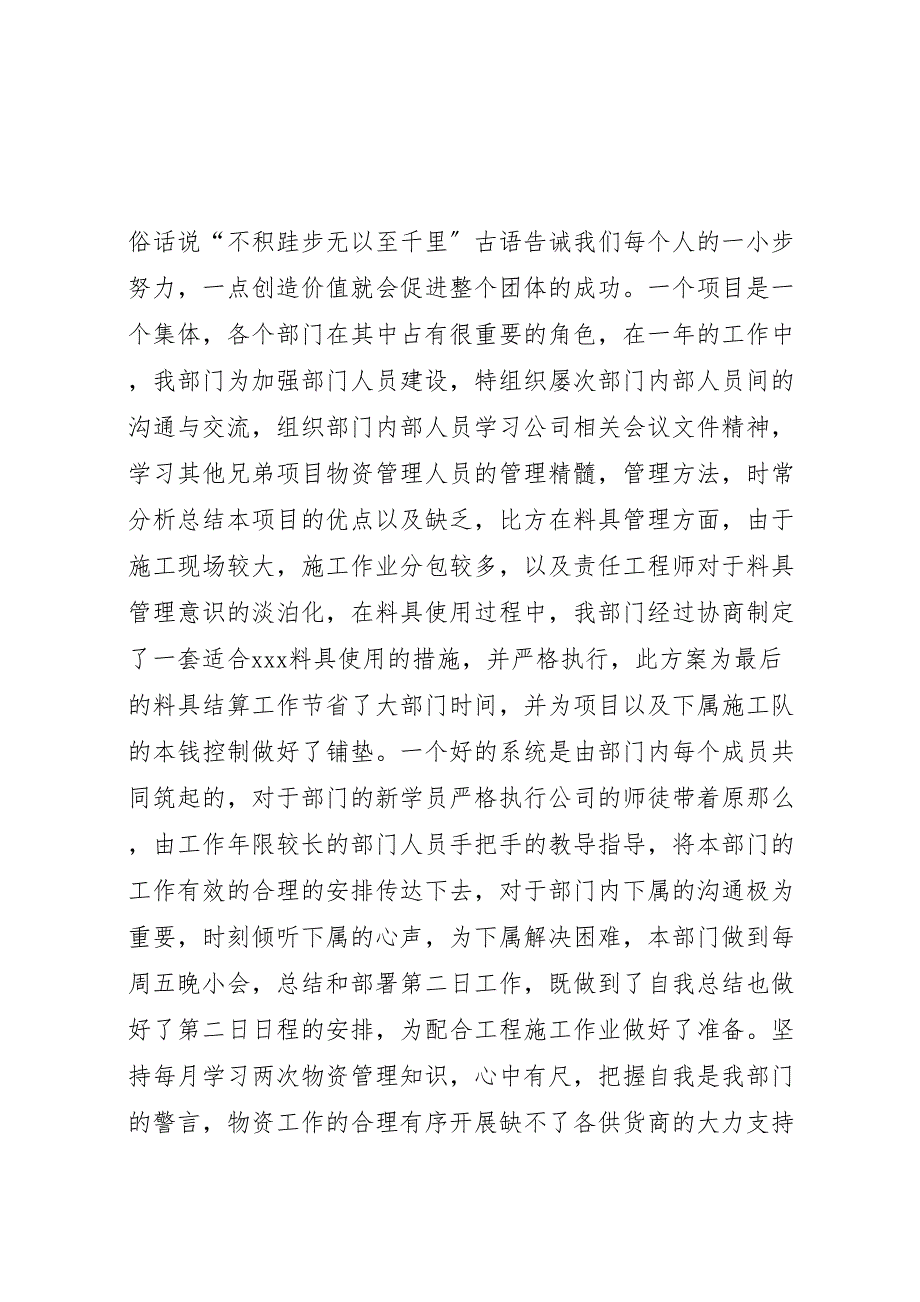 俗话说“不积跬步无以至千里〞古语告诫我们每个人的一小步
努力，一点创造价值就会促进整个团体的成功。一个项目是一
个集体，各个部门在其中占有很重要的角色，在一年的工作中
，我部门为加强部门人员建设，特组织屡次部门内部人员间的
沟通与交流，组织部门内部人员学习公司相关会议文件精神，
学习其他兄弟项目物资管理人员的管理精髓，管理方法，时常
分析总结本项目的优点以及缺乏，比方在料具管理方面，由于
施工现场较大，施工作业分包较多，以及责任工程师对于料具
管理意识的淡泊化，在料具使用过程中，我部门经过协商制定
了一套适合xxx料具使用的措施，并严格执行，此方案为最后
的料具结算工作节省了大部门时间，并为项目以及下属施工队
的本钱控制做好了铺垫。一个好的系统是由部门内每个成员共
同筑起的，对于部门的新学员严格执行公司的师徒带着原那么
，由工作年限较长的部门人员手把手的教导指导，将本部门的
工作有效的合理的安排传达下去，对于部门内下属的沟通极为
重要，时刻倾听下属的心声，为下属解决困难，本部门做到每
周五晚小会，总结和部署第二日工作，既做到了自我总结也做
好了第二日日程的安排，为配合工程施工作业做好了准备。坚
持每月学习两次物资管理知识，心中有尺，把握自我是我部门
的警言，物资工作的合理有序开展缺不了各供货商的大力支持